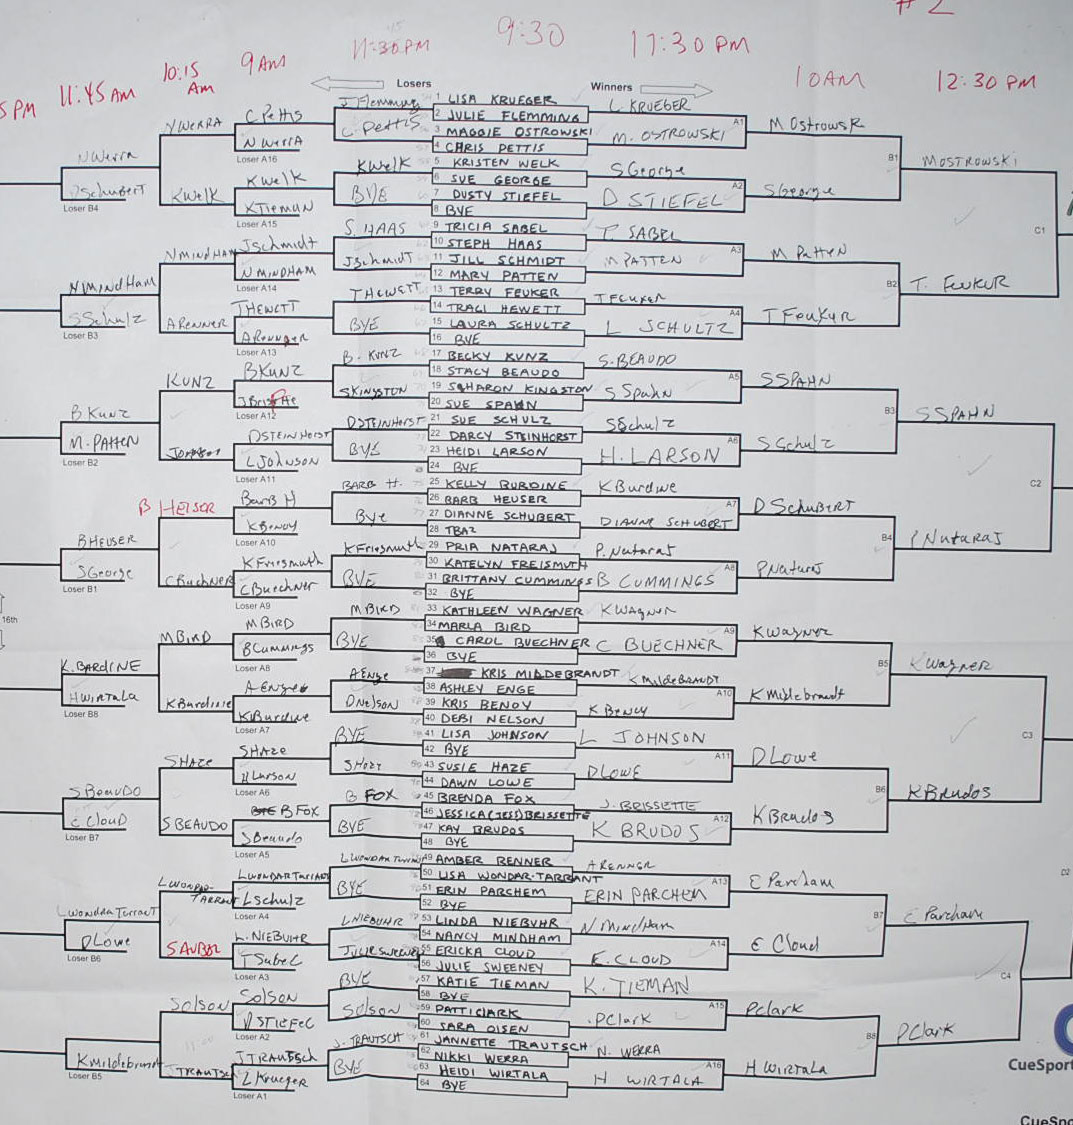 # 2
11:30 PM
9:30
11:30 PM
10 AM
12:30 PM
5 PM
11:45 AM
10:15 AM
9 AM
Losers
Winners
1 LISA KRUEGER
2 JULIE FLEMMING
3 MAGGIE OSTROWSKI
4 CHRIS PETTIS
5 KRISTEN WELK
6 SUE GEORGE
7 DUSTY STIEFEL
8 BYE
9 TRICIA SABEL
10 STEPH HAAS
11 JILL SCHMIDT
12 MARY PATTEN
13 TERRY FEUKER
14 TRACI HEWETT
15 LAURA SCHULTZ
16 BYE
17 BECKY KUNZ
18 STACY BEAUDO
19 SHARON KINGSTON
20 SUE SPAHN
21 SUE SCHULZ
22 DARCY STEINHORST
23 HEIDI LARSON
24 BYE
25 KELLY BURDINE
26 BARB HEUSER
27 DIANNE SCHUBERT
28 TBA2
29 PRIA NATARAJ
30 KATELYN FREISMUTH
31 BRITTANY CUMMINGS
32 BYE
33 KATHLEEN WAGNER
34 MARLA BIRD
35 CAROL BUECHNER
36 BYE
37 KRIS MILDEBRANDT
38 ASHLEY ENGE
39 KRIS BENOY
40 DEBI NELSON
41 LISA JOHNSON
42 BYE
43 SUSIE HAZE
44 DAWN LOWE
45 BRENDA FOX
46 JESSICA (JESS) BRISSETTE
47 KAY BRUDOS
48 BYE
49 AMBER RENNER
50 LISA WONDAR-TARRANT
51 ERIN PARCHEM
52 BYE
53 LINDA NIEBUHR
54 NANCY MINDHAM
55 ERICKA CLOUD
56 JULIE SWEENEY
57 KATIE TIEMAN
58 BYE
59 PATTI CLARK
60 SARA OLSEN
61 JANNETTE TRAUTSCH
62 NIKKI WERRA
63 HEIDI WIRTALA
64 BYE
L. KRUEGER
A1
M. OSTROWSKI
S George
A2
D STIEFEL
T. SABEL
A3
M PATTEN
T Feuker
A4
L SCHULTZ
S. BEAUDO
A5
S Spahn
S Schulz
A6
H. LARSON
K Burdine
A7
DIANNE SCHUBERT
P. Nataraj
A8
B CUMMINGS
K Wagner
A9
C BUECHNER
K Mildebrandt
A10
K Benoy
L JOHNSON
A11
D LOWE
J. BRISSETTE
A12
K BRUDOS
A RENNER
A13
ERIN PARCHEM
N Mindham
A14
E. CLOUD
K. TIEMAN
A15
P Clark
N. WERRA
A16
H WIRTALA
M Ostrowsk
B1
S George
M Patten
B2
T Feuker
S SPAHN
B3
S Schulz
D Schubert
B4
P Nataraj
K Wagner
B5
K Mildebrandt
D Lowe
B6
K Brudos
E Parcham
B7
E Cloud
P Clark
B8
H Wirtala
M OSTROWSKI
C1
T. FEUKER
S SPAHN
C2
P Nataraj
K Wagner
C3
K Brudos
E Parcham
C4
P Clark
D2
J. Flemming
C. Pettis
K Welk
BYE
S. HAAS
J Schmidt
T HEWETT
BYE
B. KUNZ
S KINGSTON
D STEINHORST
BYE
BARB H.
Bye
K Friesmuth
BYE
M BIRD
BYE
A Enge
D Nelson
BYE
S Haze
B FOX
BYE
L WONDAR Tarrant
BYE
L NIEBUHR
Julie Sweeney
BYE
S Olson
J. TRAUTSCH
BYE
C Pettis
N Werra
Loser A16
K Welk
K Tieman
Loser A15
J Schmidt
N MINDHAM
Loser A14
T HEWETT
A Renner
Loser A13
B KUNZ
Loser A12
D STEINHORST
L JOHNSON
Loser A11
Barb H
K Benoy
Loser A10
K Friesmuth
C Buechner
Loser A9
M BIRD
B Cummings
Loser A8
A Enge
K Burdine
Loser A7
S HAZE
H Larson
Loser A6
B FOX
S Beaudo
Loser A5
L WONDAR Tarrant
L Schulz
Loser A4
L. NIEBUHR
T Sabel
Loser A3
S Olson
D STIEFEL
Loser A2
J TRAUTSCH
L Krueger
Loser A1
N WERRA
K Welk
N MINDHAM
A RENNER
KUNZ
Johnson
B HEISER
C Buchner
M BIRD
K Burdine
S HAZE
S BEAUDO
L WONDAR TARRANT
S Olson
J TRAUTSCH
N Werra
D Schubert
Loser B4
N Mindham
S Schulz
Loser B3
B Kunz
M. PATTEN
Loser B2
B HEUSER
S George
Loser B1
16th
K. BARDINE
H WIRTALA
Loser B8
S BEAUDO
E CLOUD
Loser B7
L Wondra Tarrant
D Lowe
Loser B6
K Mildebrandt
Loser B5
CueSport
CueSpo